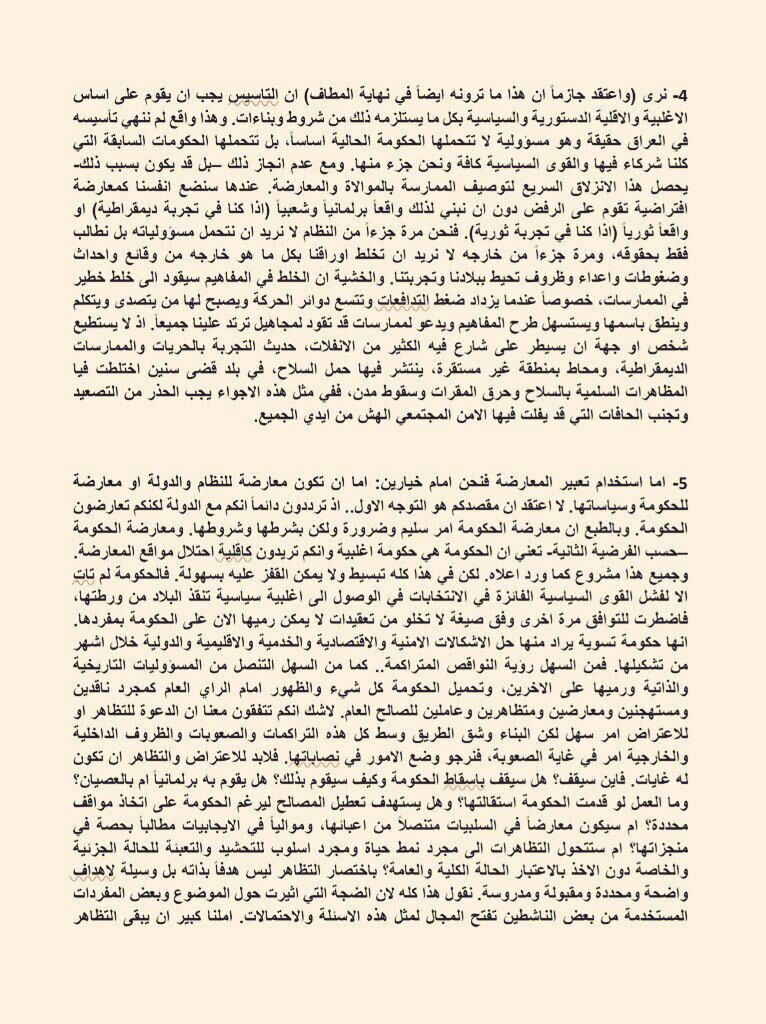 4- نرى (واعتقد جازماً ان هذا ما ترونه ايضاً في نهاية المطاف) ان التاسيس يجب ان يقوم على اساس
الاغلبية والاقلية الدستورية والسياسية بكل ما يستلزمه ذلك من شروط وبناءات. وهذا واقع لم ننهي تأسيسه
في العراق حقيقة وهو مسؤولية لا تتحملها الحكومة الحالية اساساً، بل تتحملها الحكومات السابقة التي
كلنا شركاء فيها والقوى السياسية كافة ونحن جزء منها. ومع عدم انجاز ذلك –بل قد يكون بسبب ذلك-
يحصل هذا الانزلاق السريع لتوصيف الممارسة بالموالاة والمعارضة. عندها سنضع انفسنا كمعارضة
افتراضية تقوم على الرفض دون ان نبني لذلك واقعاً برلمانياً وشعبياً (اذا كنا في تجربة ديمقراطية) او
واقعاً ثورياً (اذا كنا في تجربة ثورية). فنحن مرة جزءاً من النظام لا نريد ان نتحمل مسؤولياته بل نطالب
فقط بحقوقه، ومرة جزءاً من خارجه لا نريد ان تخلط اوراقنا بكل ما هو خارجه من وقائع واحداث
وضغوطات واعداء وظروف تحيط ببلادنا وتجربتنا. والخشية ان الخلط في المفاهيم سيقود الى خلط خطير
في الممارسات، خصوصاً عندما يزداد ضغط التدافعات وتتسع دوائر الحركة ويصبح لها من يتصدى ويتكلم
وينطق باسمها ويستسهل طرح المفاهيم ويدعو لممارسات قد تقود لمجاهيل ترتد علينا جميعاً. اذ لا يستطيع
شخص او جهة ان يسيطر على شارع فيه الكثير من الانفلات، حديث التجربة بالحريات والممارسات
الديمقراطية، ومحاط بمنطقة غير مستقرة، ينتشر فيها حمل السلاح، في بلد قضى سنين اختلطت فيا
المظاهرات السلمية بالسلاح وحرق المقرات وسقوط مدن، ففي مثل هذه الاجواء يجب الحذر من التصعيد
وتجنب الحافات التي قد يفلت فيها الامن المجتمعي الهش من ايدي الجميع.
5- اما استخدام تعبير المعارضة فنحن امام خيارين: اما ان تكون معارضة للنظام والدولة او معارضة
للحكومة وسياساتها. لا اعتقد ان مقصدكم هو التوجه الاول.. اذ ترددون دائماً انكم مع الدولة لكنكم تعارضون
الحكومة. وبالطبع ان معارضة الحكومة امر سليم وضرورة ولكن بشرطها وشروطها. ومعارضة الحكومة
–حسب الفرضية الثانية- تعني ان الحكومة هي حكومة اغلبية وانكم تريدون كاقلية احتلال مواقع المعارضة.
وجميع هذا مشروع كما ورد اعلاه. لكن في هذا كله تبسيط ولا يمكن القفز عليه بسهولة. فالحكومة لم تات
الا لفشل القوى السياسية الفائزة في الانتخابات في الوصول الى اغلبية سياسية تنقذ البلاد من ورطتها،
فاضطرت للتوافق مرة اخرى وفق صيغة لا تخلو من تعقيدات لا يمكن رميها الان على الحكومة بمفردها.
انها حكومة تسوية يراد منها حل الاشكالات الامنية والاقتصادية والخدمية والاقليمية والدولية خلال اشهر
من تشكيلها. فمن السهل رؤية النواقص المتراكمة.. كما من السهل التنصل من المسؤوليات التاريخية
والذاتية ورميها على الاخرين، وتحميل الحكومة كل شيء والظهور امام الراي العام كمجرد ناقدين
ومستهجنين ومعارضين ومتظاهرين وعاملين للصالح العام. لاشك انكم تتفقون معنا ان الدعوة للتظاهر او
للاعتراض امر سهل لكن البناء وشق الطريق وسط كل هذه التراكمات والصعوبات والظروف الداخلية
والخارجية امر في غاية الصعوبة، فنرجو وضع الامور في نصاباتها. فلابد للاعتراض والتظاهر ان تكون
له غايات. فاين سيقف؟ هل سيقف باسقاط الحكومة وكيف سيقوم بذلك؟ هل يقوم به برلمانياً ام بالعصيان؟
وما العمل لو قدمت الحكومة استقالتها؟ وهل يستهدف تعطيل المصالح ليرغم الحكومة على اتخاذ مواقف
محددة؟ ام سيكون معارضاً في السلبيات متنصلاً من اعبائها، وموالياً في الايجابيات مطالباً بحصة في
منجزاتها؟ ام ستتحول التظاهرات الى مجرد نمط حياة ومجرد اسلوب للتحشيد والتعبئة للحالة الجزئية
والخاصة دون الاخذ بالاعتبار الحالة الكلية والعامة؟ باختصار التظاهر ليس هدفاً بذاته بل وسيلة لاهداف
واضحة ومحددة ومقبولة ومدروسة. نقول هذا كله لان الضجة التي اثيرت حول الموضوع وبعض المفردات
المستخدمة من بعض الناشطين تفتح المجال لمثل هذه الاسئلة والاحتمالات. املنا كبير ان يبقى التظاهر